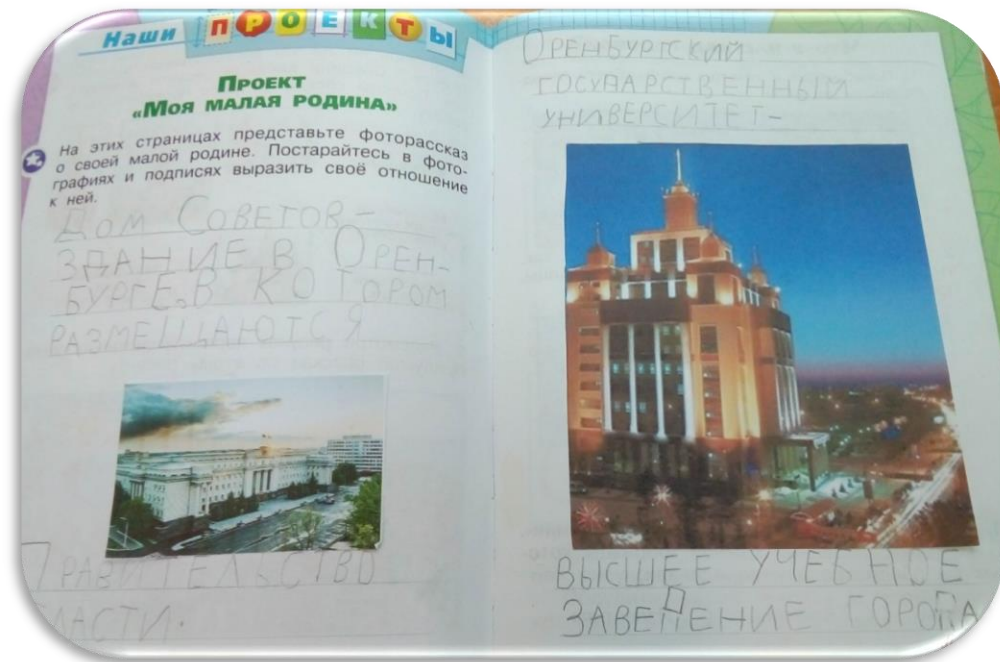 Наши ПРОЕКТЫ
ПРОЕКТ
«МОЯ МАЛАЯ РОДИНА»
На этих страницах представьте фоторассказ
о своей малой родине. Постарайтесь в фото-
графиях и подписях выразить своё отношение
к ней.
ДОМ СОВЕТОВ –
ЗДАНИЕ В ОРЕН-
БУРГЕ, В КОТОРОМ
РАЗМЕЩАЮТСЯ
ПРАВИТЕЛЬСТВО
ЛАСТИ.
ОРЕНБУРГСКИЙ
ГОСУДАРСТВЕННЫЙ
УНИВЕРСИТЕТ –
ВЫСШЕЕ УЧЕБНОЕ
ЗАВЕДЕНИЕ ГОРОДА